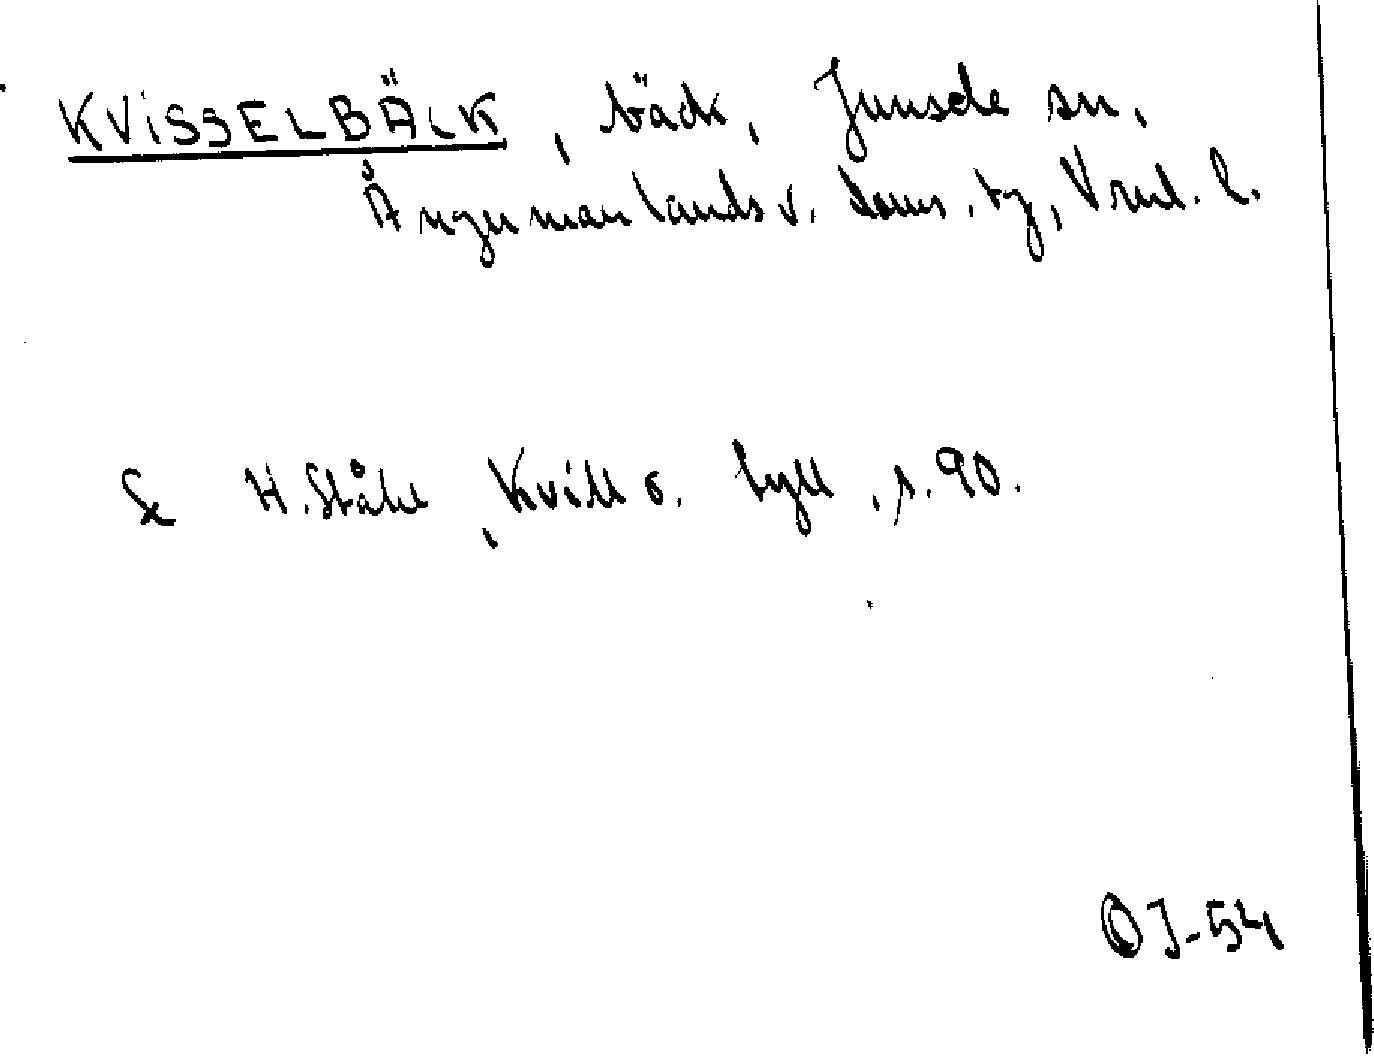 KVISSELBÄCK, bäck, Junsele sn,
Ångermanlands v. doms. tg, Vrnl. l.
Se H. Ståhl, Kvill o. tyll, s. 90.
OJ-54